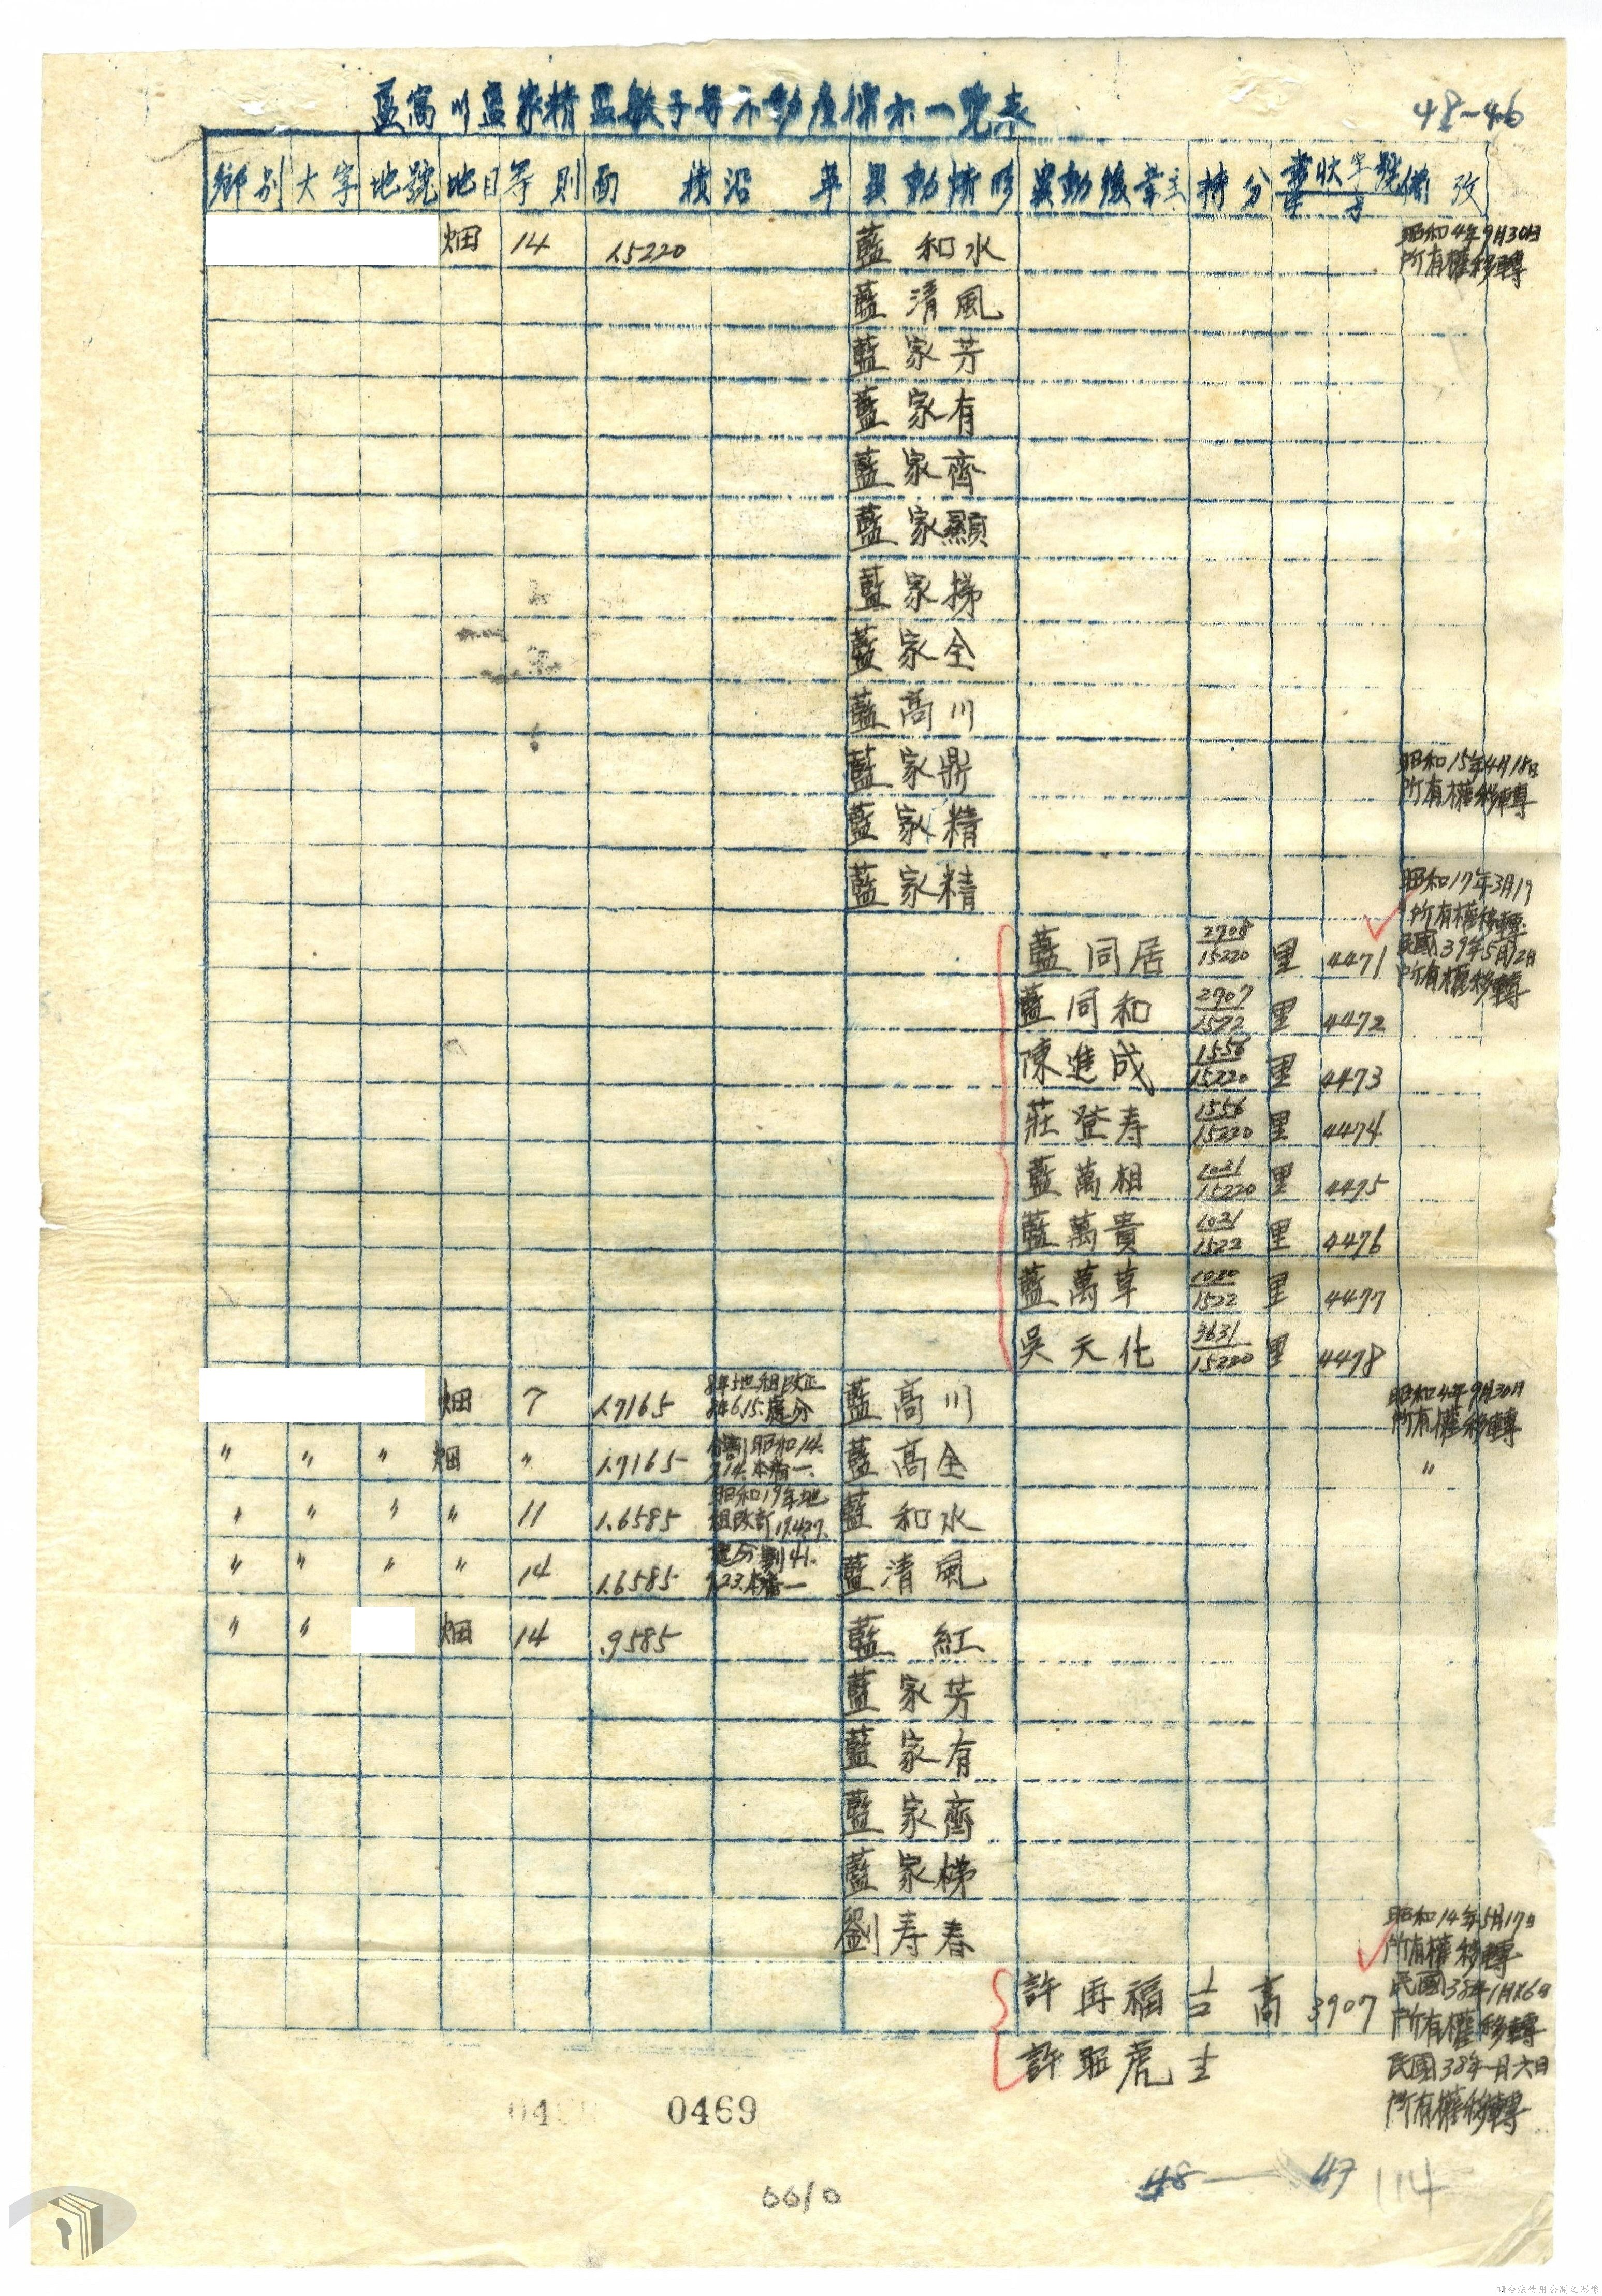 藍高川藍家精藍敏子等不動產標示一覽表
48-46
鄉別 大字 地號 地目 等則 面積 沿革 異動情形 異動後業主 持分 書狀字號 備攷
畑 14 1.5220 藍和水 昭和4年9月30日
所有權移轉
藍清風
藍家芳
藍家有
藍家齊
藍家顯
藍家梯
藍家全
藍高川
藍家鼎 昭和15年4月18日
所有權移轉
藍家精
藍家精 昭和17年3月17
所有權移轉
藍同居 2708/15220 里 4471 民國39年5月12日
所有權移轉
藍同和 2707/1522 里 4472
陳進成 1556/15220 里 4473
莊登寿 1556/15220 里 4474
藍萬相 1021/15220 里 4475
藍萬貴 1021/1522 里 4476
藍萬草 1020/1522 里 4477
吳天化 3631/15220 里 4478
畑 7 1.7165 8年地租改正 藍高川 昭和4年9月30日
846.15.處分 所有權移轉
〃 〃 〃 畑 〃 1.7165 分割昭和14. 藍高全 〃
本番一
〃 〃 〃 〃 11 1.6585 昭和19年地 藍和水
租改訂19.4.27.
〃 〃 〃 〃 14 1.6585 分割41. 藍清風
9.23.本番一
〃 〃 畑 14 .9585 藍紅
藍家芳
藍家有
藍家齊
藍家梯
劉寿春 昭和14年5月17日
所有權移轉
許再福 高 3907 民國38年1月26日
所有權移轉
許昭虎 民國38年一月六日
所有權移轉
0469
6610
48—47
114
請合法使用公開之影像